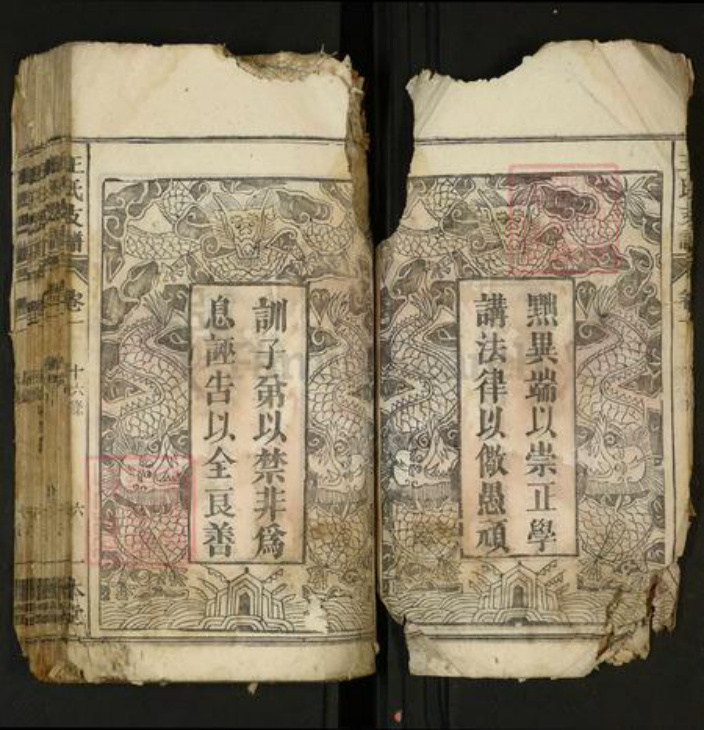 黜異端以崇正學
講法律以儆愚頑
訓子弟以禁非爲
息誣告以全良善
王氏支譜
卷一
十六條
六